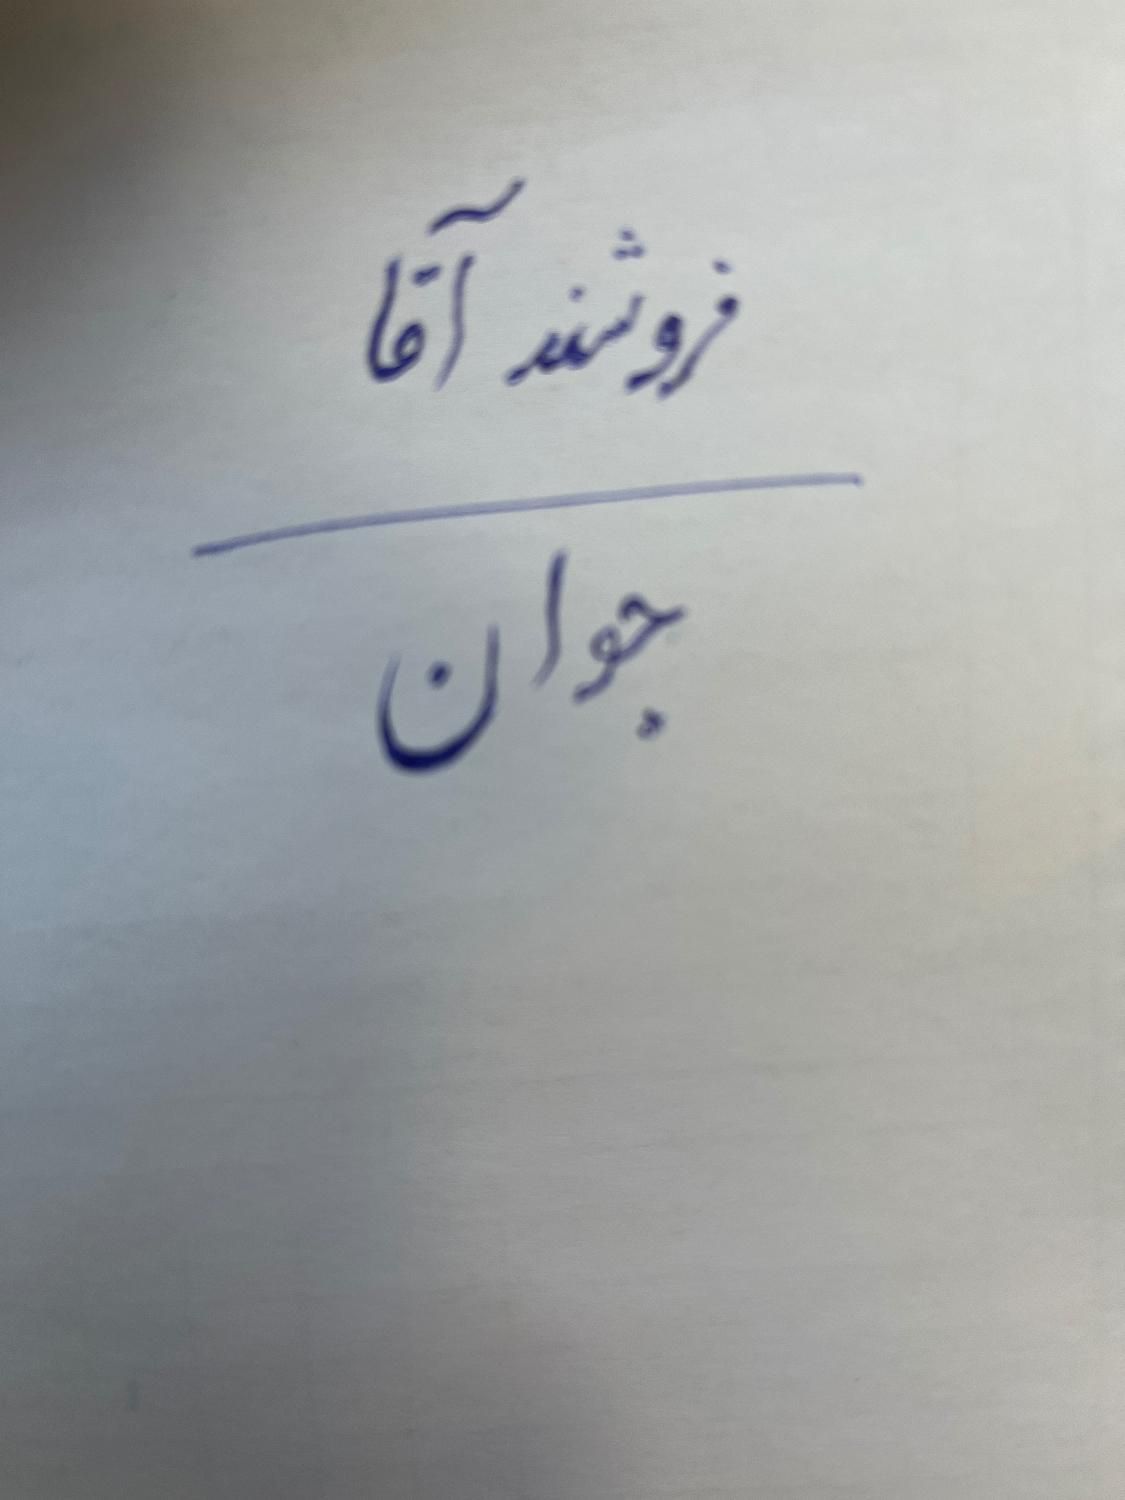 فروشند آقا
جوان